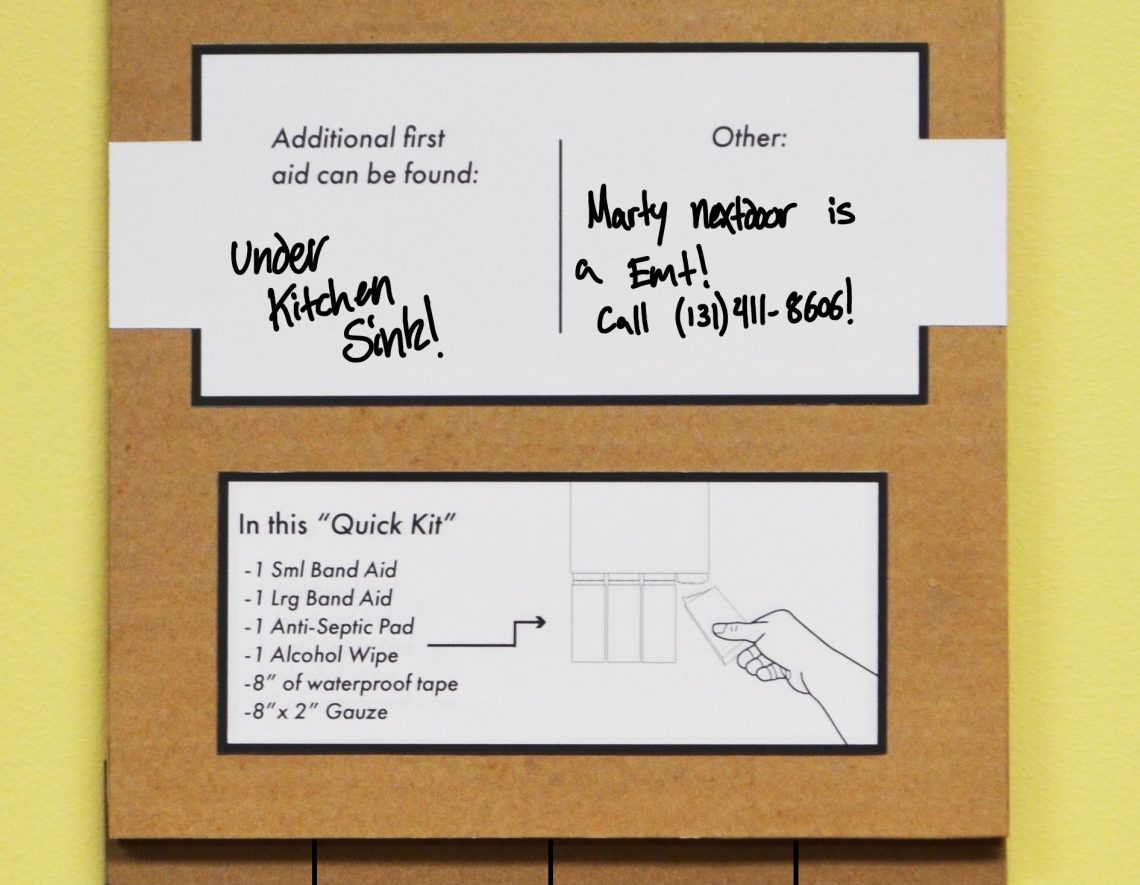 Additional first
aid can be found:
Under
Kitchen
Sink!
Other:
Marty nextdoor is
a Emt!
Call (131) 411-8606!
In this "Quick Kit"
-1 Sml Band Aid
-1 Lrg Band Aid
-1 Anti-Septic Pad
-1 Alcohol Wipe
-8" of waterproof tape
-8"x 2" Gauze